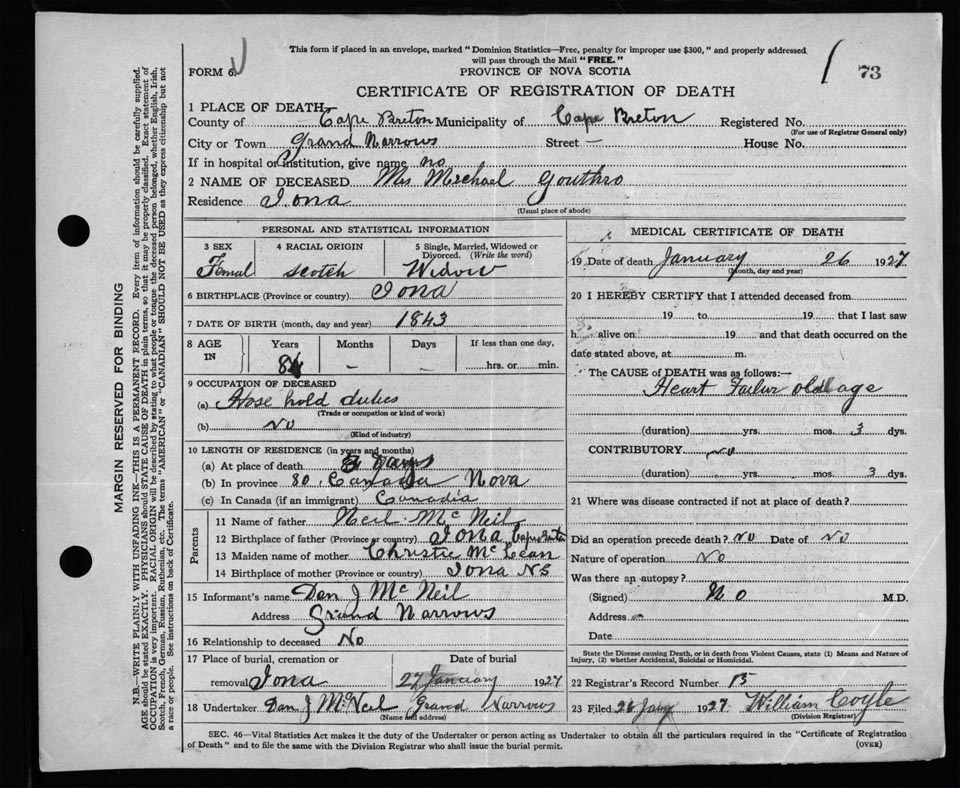 This form if placed in an envelope, marked "Dominion Statistics—Free, penalty for improper use $300," and properly addressed
will pass through the Mail "FREE."
FORM 6.
PROVINCE OF NOVA SCOTIA
73
CERTIFICATE OF REGISTRATION OF DEATH
1 PLACE OF DEATH
County of Cape Breton Municipality of Cape Breton Registered No.
(For use of Registrar General only)
City or Town Grand Narrows Street — House No.
If in hospital or institution, give name no
2 NAME OF DECEASED Mrs Michael Gouthro
Residence Iona
(Usual place of abode)
PERSONAL AND STATISTICAL INFORMATION
3 SEX 4 RACIAL ORIGIN 5 Single, Married, Widowed or
Divorced. (Write the word)
Femal Scotch Widow
6 BIRTHPLACE (Province or country) Iona
7 DATE OF BIRTH (month, day and year) 1843
8 AGE IN Years Months Days If less than one day,
84 — — hrs. or min.
9 OCCUPATION OF DECEASED
(a) Hose hold duties
(Trade or occupation or kind of work)
(b) no
(Kind of industry)
10 LENGTH OF RESIDENCE (in years and months)
(a) At place of death days
(b) In province 80. Canada Nova
(c) In Canada (if an immigrant) Canadia
Parents
11 Name of father Neil McNeil
12 Birthplace of father (Province or country) Iona Cape Breton
13 Maiden name of mother Christie McLean
14 Birthplace of mother (Province or country) Iona NS
15 Informant's name Dan J McNeil
Address Grand Narrows
16 Relationship to deceased No
17 Place of burial, cremation or Date of burial
removal Iona 27 January 1927
18 Undertaker Dan J McNeil Grand Narrows
(Name and address)
MEDICAL CERTIFICATE OF DEATH
19 Date of death January 26 1927
(Month, day and year)
20 I HEREBY CERTIFY that I attended deceased from
19 to 19 that I last saw
h alive on 19 and that death occurred on the
date stated above, at m.
The CAUSE of DEATH was as follows:—
Heart Failur old age
(duration) yrs. mos. 3 dys.
CONTRIBUTORY no
(duration) yrs. mos. 3 dys.
21 Where was disease contracted if not at place of death?
Did an operation precede death? no Date of no
Nature of operation No
Was there an autopsy?
(Signed) No M.D.
Address —
Date
State the Disease causing Death, or in death from Violent Causes, state (1) Means and Nature of
Injury, (2) whether Accidental, Suicidal or Homicidal.
22 Registrar's Record Number 15
23 Filed 26 Jany 1927 William Coyle
(Division Registrar)
SEC. 46—Vital Statistics Act makes it the duty of the Undertaker or person acting as Undertaker to obtain all the particulars required in the "Certificate of Registration
of Death" and to file the same with the Division Registrar who shall issue the burial permit.
(OVER)
MARGIN RESERVED FOR BINDING
N.B.—WRITE PLAINLY WITH UNFADING INK—THIS IS A PERMANENT RECORD. Every item of information should be carefully supplied.
AGE should be stated EXACTLY. PHYSICIANS should STATE CAUSE OF DEATH in plain terms, so that it may be properly classified. Exact statement of
OCCUPATION is very important. RACIAL ORIGIN will be described by stating to what people or tongue the deceased person belonged, whether English, Irish,
Scotch, French, German, Russian, Ruthenian, etc. The terms "AMERICAN" or "CANADIAN" SHOULD NOT BE USED as they express citizenship but not
a race or people. See instructions on back of Certificate.